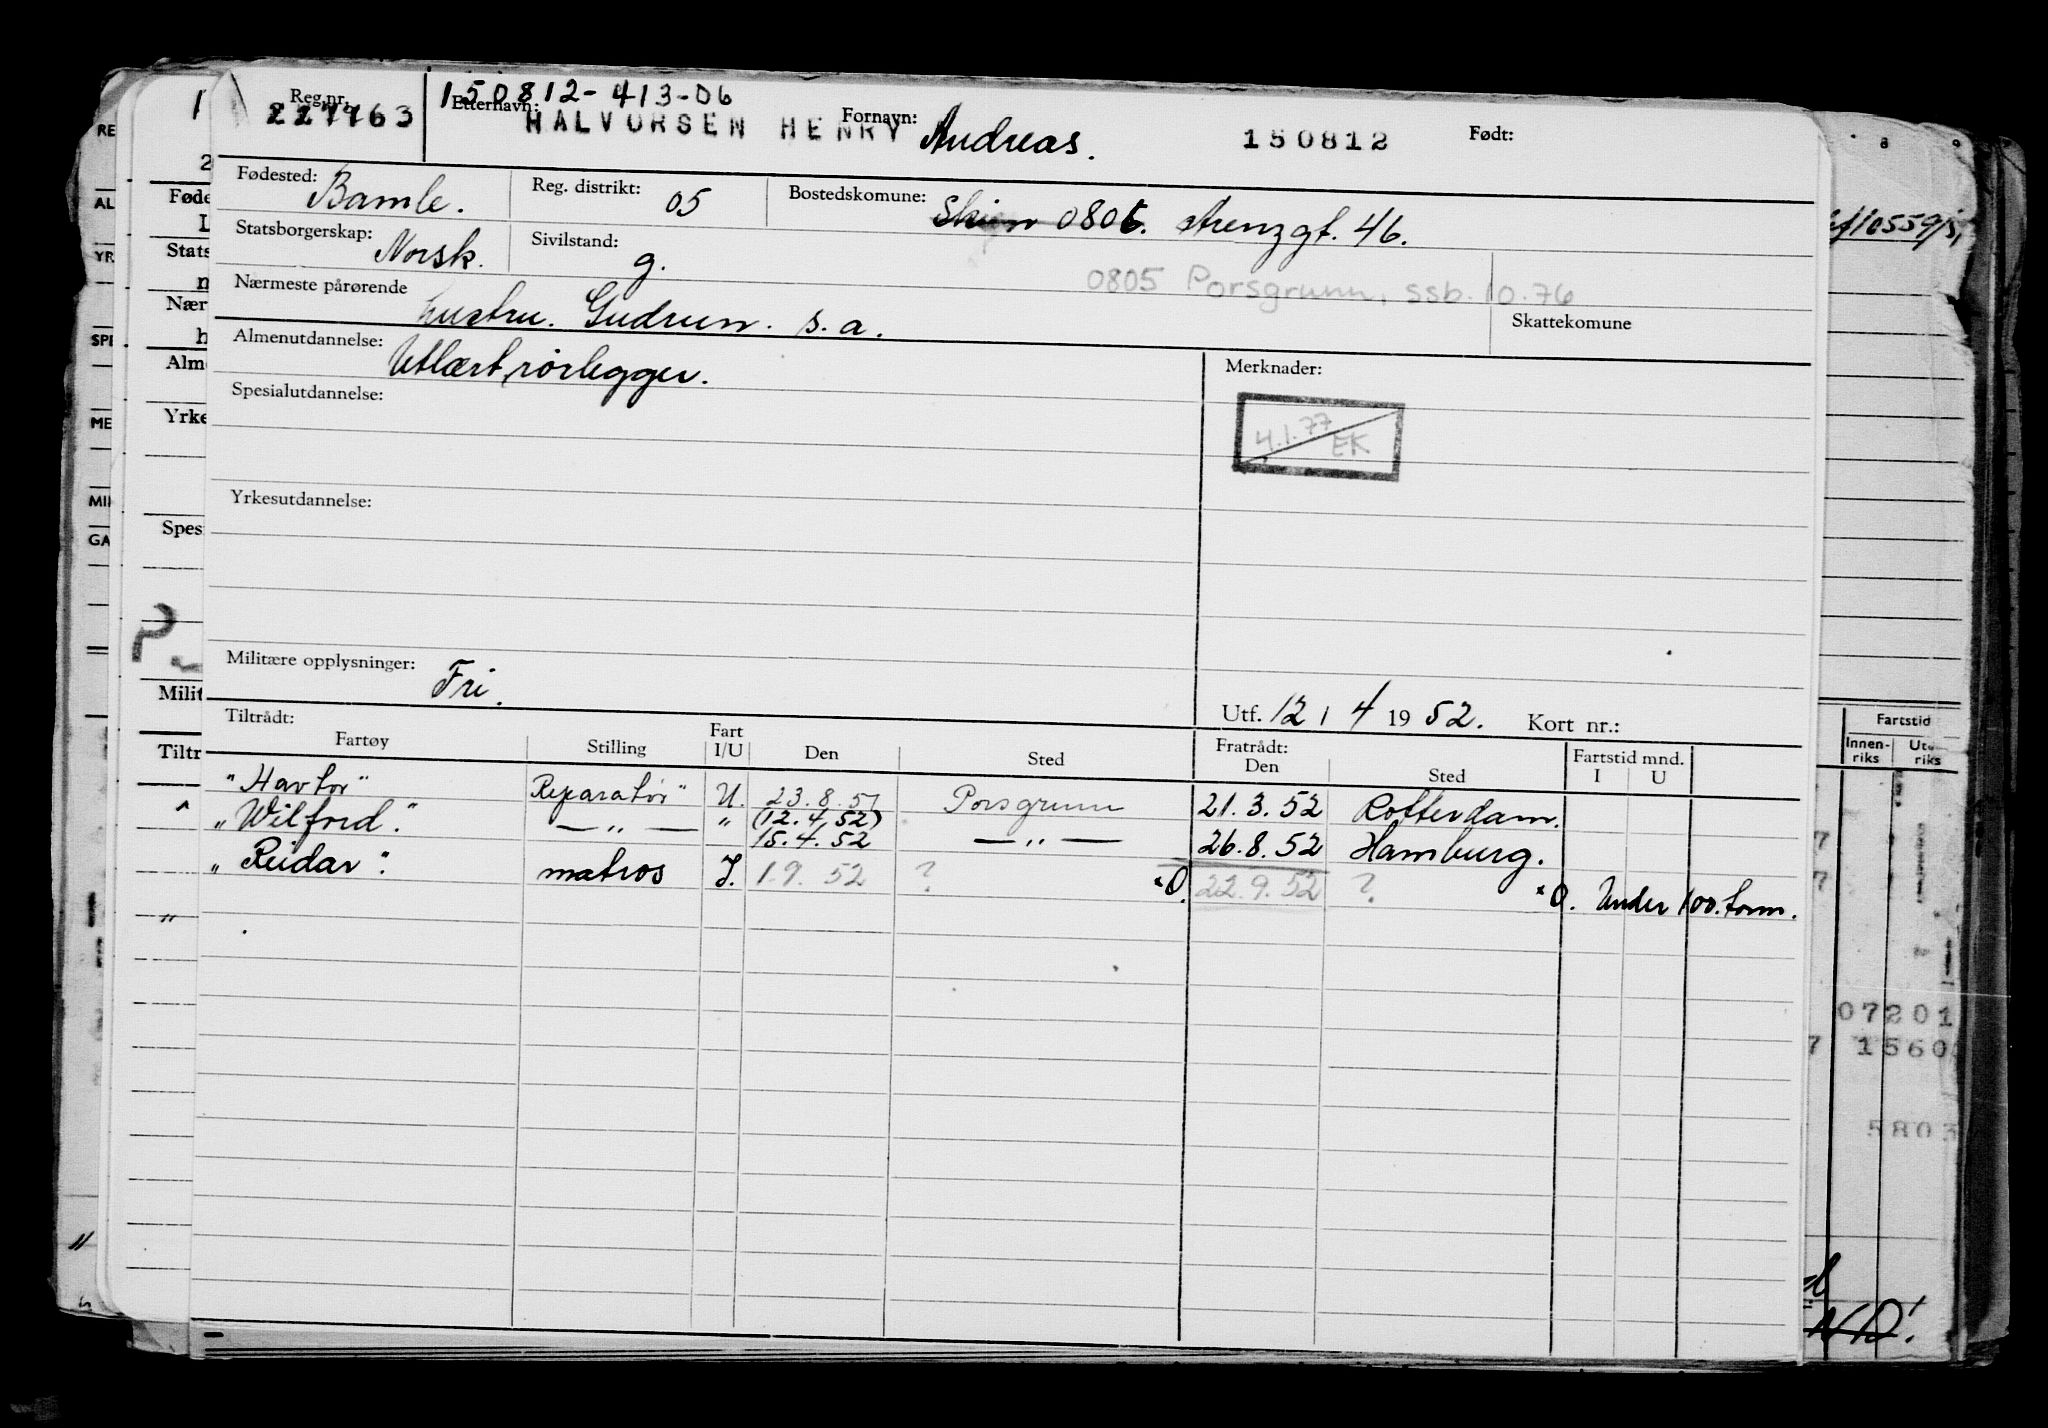 150812-413-06
Reg.nr. 227763 Etternavn: HALVORSEN HENRY Fornavn: Andreas. 150812 Født:
Fødested: Bamle. Reg. distrikt: 05 Bostedskomune: Skien 0806. strenzgt. 46.
Statsborgerskap: Norsk. Sivilstand: g.
0805 Porsgrunn, ssb. 10.76
Nærmeste pårørende hustru. Gudrun. s. a. Skattekomune
Almenutdannelse: Utlært rørlegger. Merknader:
Spesialutdannelse:
4.1.77 EK
Yrkesutdannelse:
Militære opplysninger: Fri.
Tiltrådt: Utf. 12 / 4 19 52. Kort nr.:
Fartøy Stilling Fart I/U Den Sted Fratrådt: Den Sted Fartstid mnd. I U
"Havtor" Reparatør" U. 23.8.51 Porsgrunn 21.3.52 Rotterdam.
"Wilfred". — " — " (12.4.52)
15.4.52 — " — 26.8.52 Hamburg.
"Reidar". matros I. 1.9.52 ? *O. 22.9.52 ? *O. Under 100. tonn.
RE
AL
YR
SPE
ME
MIL
GA
Føde
Stats
Nær
h
Alm
Yrke
Spes
Milit
Tiltr
Fartstid
Innen-
riks
riks
07201
7 1560
5803